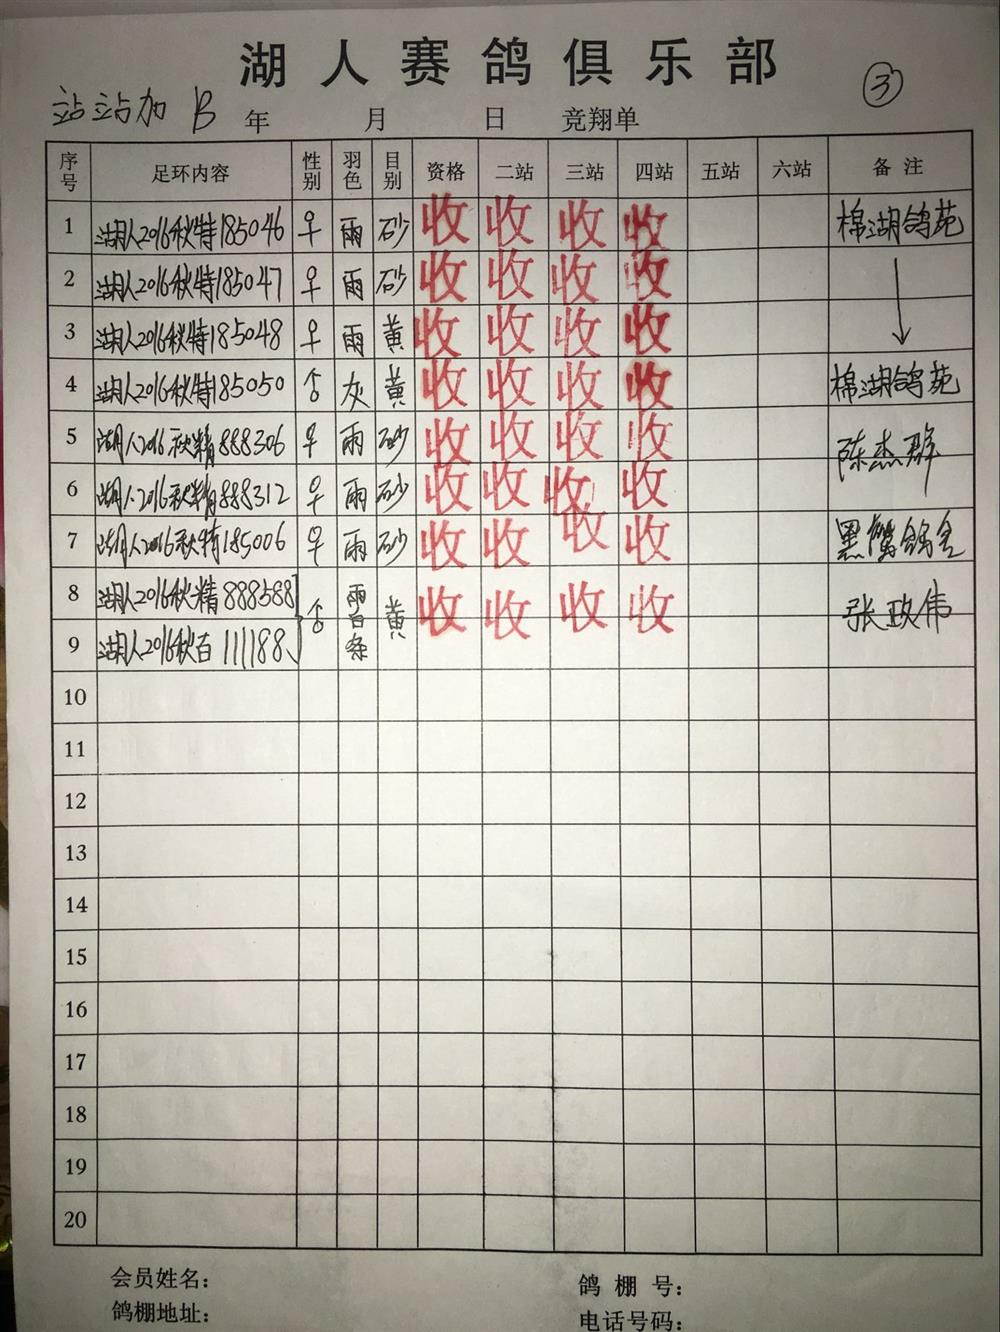 湖人赛鸽俱乐部
③
站站加 B 年 月 日 竞翔单
序号 足环内容 性别 羽色 目别 资格 二站 三站 四站 五站 六站 备注
1 湖人2016秋特185046 ♀ 雨 砂 收 收 收 收 棉湖鸽苑
2 湖人2016秋特185047 ♀ 雨 砂 收 收 收 收
3 湖人2016秋特185048 ♀ 雨 黄 收 收 收 收
4 湖人2016秋特185050 ♂ 灰 黄 收 收 收 收 棉湖鸽苑
5 湖人2016秋精888306 ♀ 雨 砂 收 收 收 收 陈杰群
6 湖人2016秋精888312 ♀ 雨 砂 收 收 收 收
7 湖人2016秋特185006 ♀ 雨 砂 收 收 收 收 黑蟹鸽舍
8 湖人2016秋精888588 ♂ 雨白条 黄 收 收 收 收 张政伟
9 湖人2016秋百111188
10
11
12
13
14
15
16
17
18
19
20
会员姓名： 鸽棚号：
鸽棚地址： 电话号码：